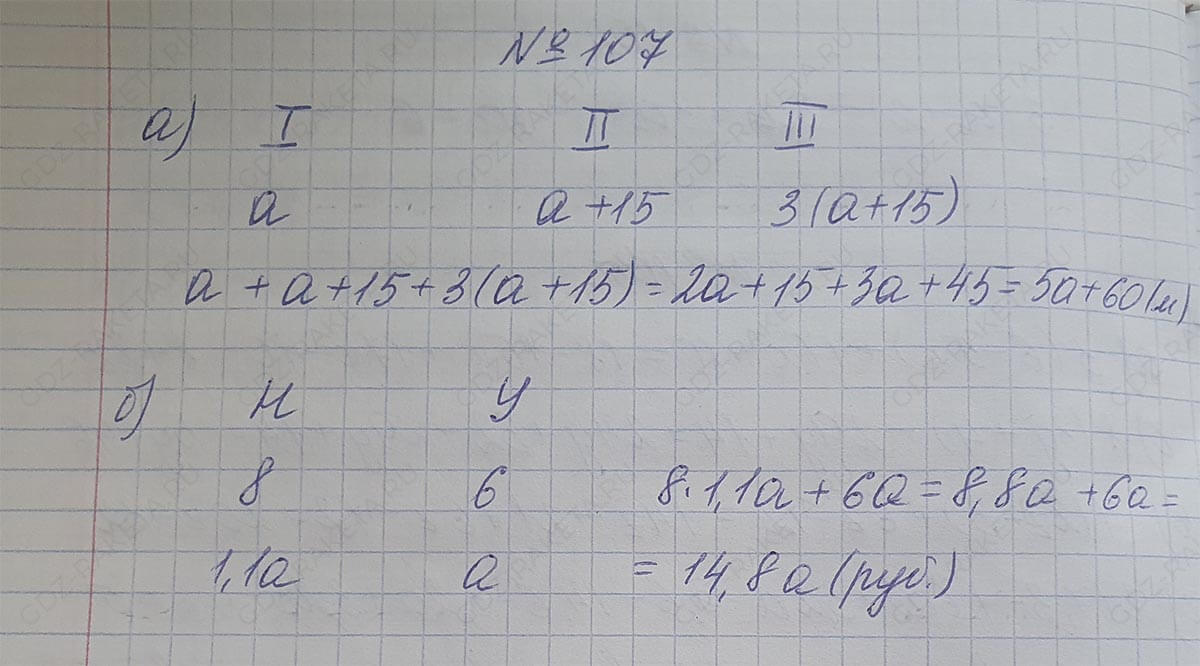 № 107
а) I II III
a a+15 3(a+15)
a+a+15+3(a+15)=2a+15+3a+45=5a+60(м)
б) Н У
8 6 8·1,1a+6a=8,8a+6a=
1,1a a =14,8a(руб.)
GDZ-RAKETA.RU